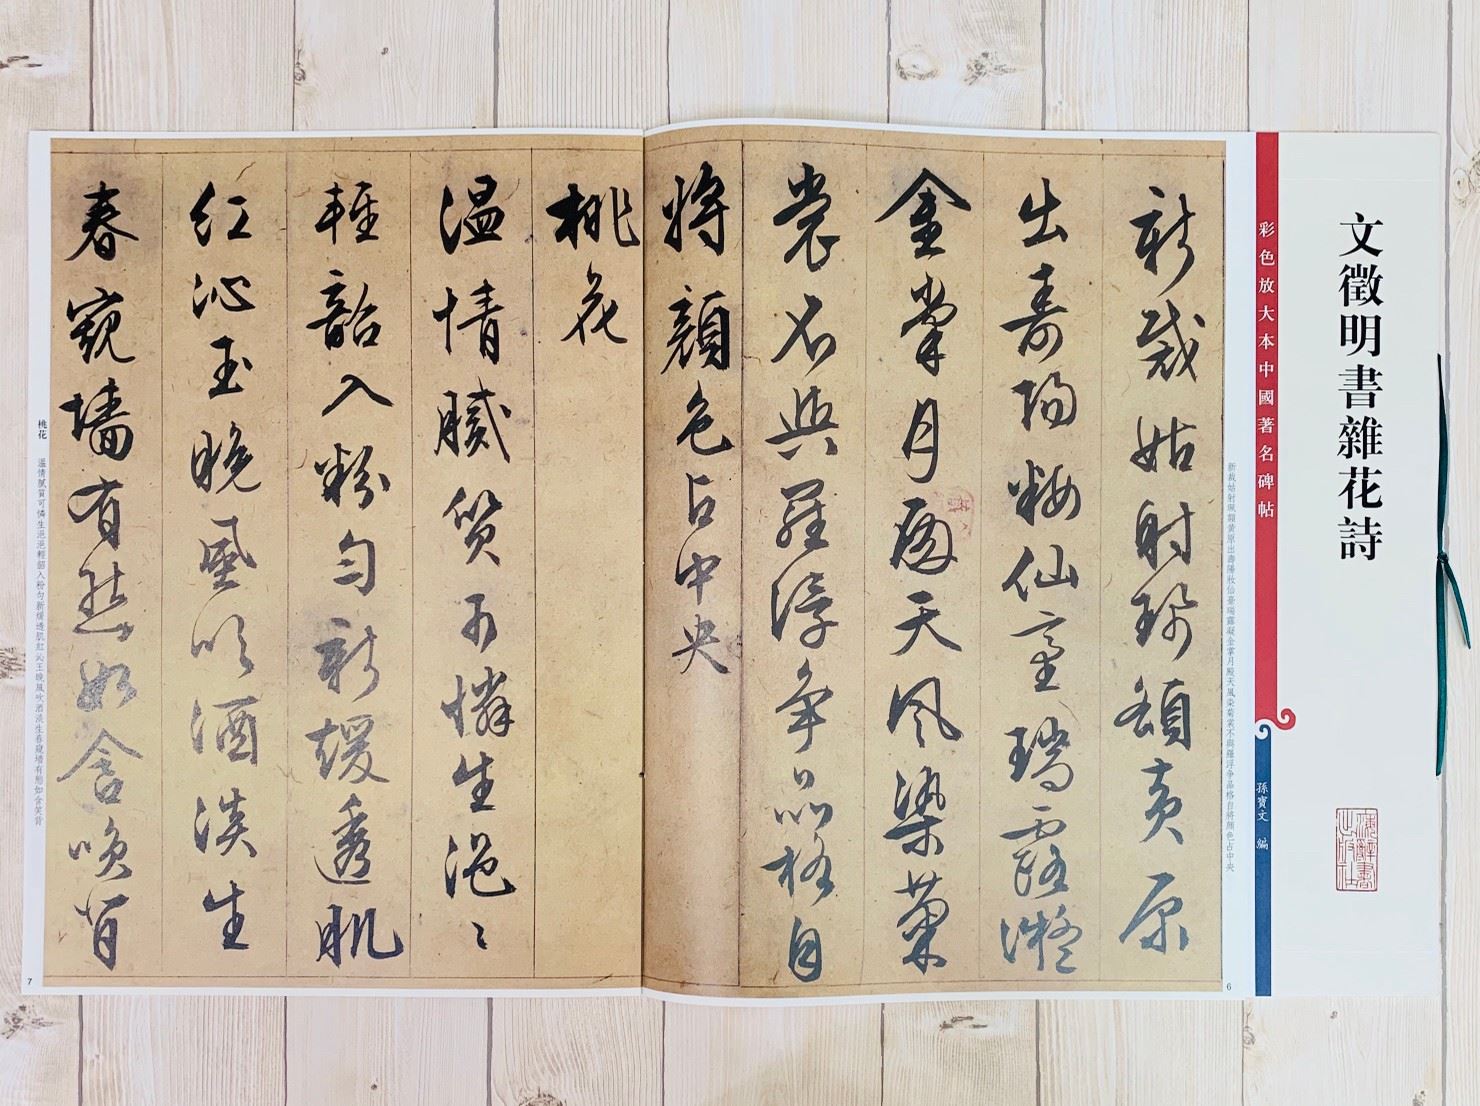 文徵明書雜花詩
上海辭書出版社
彩色放大本中國著名碑帖
孫寶文 編
新裁姑射珮額黃原出壽陽妝仙臺瑞露凝金掌月殿天風染菊裳不與羅浮爭品格自將顏色占中央
6
新裁姑射珮額黃原
出壽陽妝仙臺瑞露凝
金掌月殿天風染菊
裳不與羅浮爭品格自
將顏色占中央
桃花
溫情膩質可憐生浥〻
輕韶入粉勻新煖透肌
紅沁玉晚風吹酒淡生
春窺墻有態如含笑背
桃花 溫情膩質可憐生浥浥輕韶入粉勻新煖透肌紅沁玉晚風吹酒淡生春窺墻有態如含笑背
7